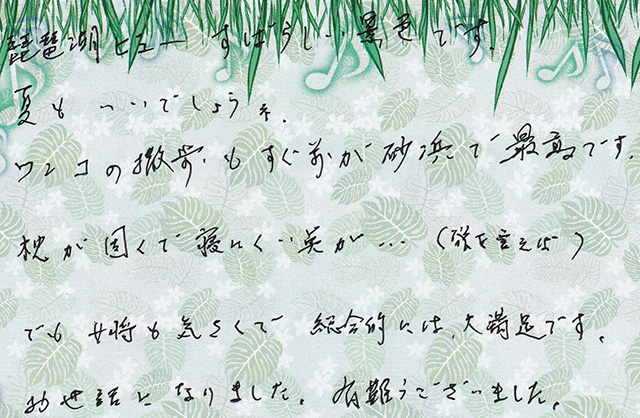 琵琶湖ビュー すばらしい景色です。
夏も いいでしょうネ。
ワンコの散歩も すぐ前が 砂浜で 最高です。
枕が 固くて 寝にくい がが… (強を言えば)
でも 女将も 気さくで 総合的には、大満足です。
お世話に なりました。 有難うございました。